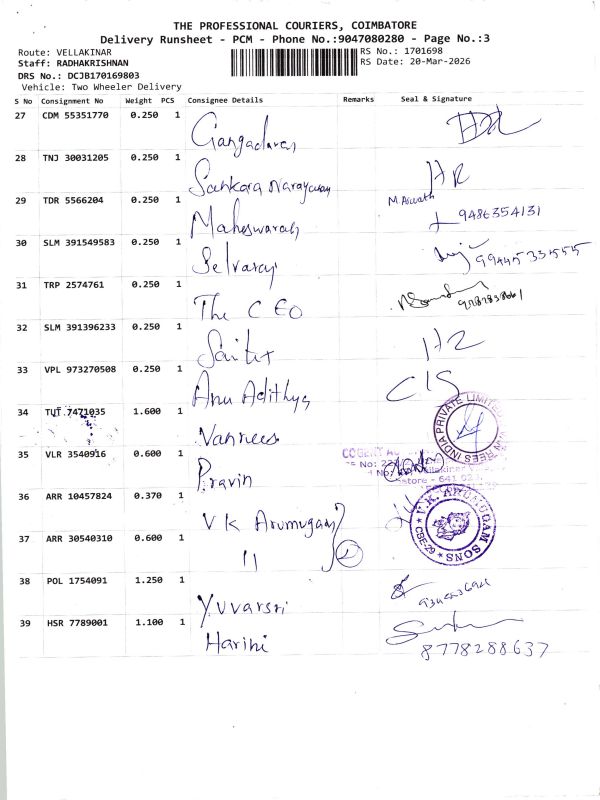 THE PROFESSIONAL COURIERS, COIMBATORE
Delivery Runsheet - PCM - Phone No.:9047080280 - Page No.:3
Route: VELLAKINAR RS No.: 1701698
Staff: RADHAKRISHNAN RS Date: 20-Mar-2026
DRS No.: DCJB170169803
Vehicle: Two Wheeler Delivery
S No Consignment No Weight PCS Consignee Details Remarks Seal & Signature
27 CDM 55351770 0.250 1 Gangadaran
28 TNJ 30031205 0.250 1 Sankara Narayanan HR
29 TDR 5566204 0.250 1 Maheswaran M Aswath 9486354131
30 SLM 391549583 0.250 1 Selvaraj 9944533555
31 TRP 2574761 0.250 1 The CEO
32 SLM 391396233 0.250 1
33 VPL 973270508 0.250 1 Anu Adithya C/S
34 TUT 7471035 1.600 1 Vanrees
REES INDIA PRIVATE LIMITED
35 VLR 3540916 0.600 1 Pravin
36 ARR 10457824 0.370 1 V K Arumugam
V.K. ARUMUGAM SONS
CBE-29
37 ARR 30540310 0.600 1 11 2
38 POL 1754091 1.250 1 Yuvarsri
39 HSR 7789001 1.100 1 Harini
8778288637